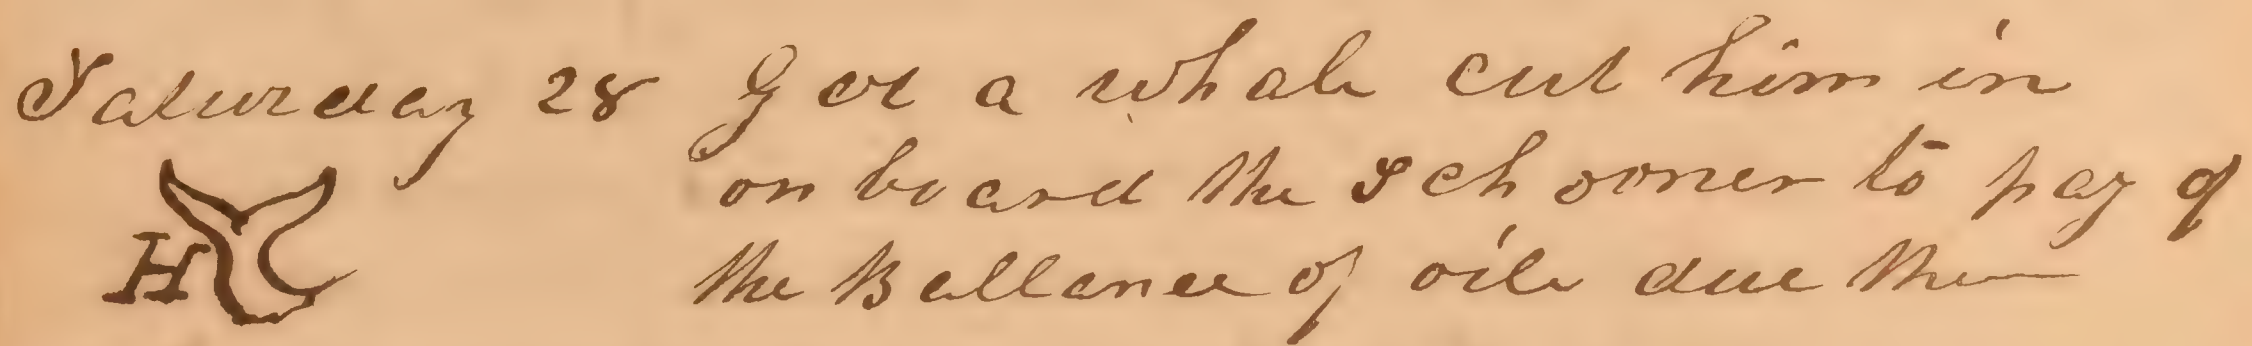 Saturday 28 Got a whale cut him in
on board the Schooner to pay of
H the Ballance of oile due them